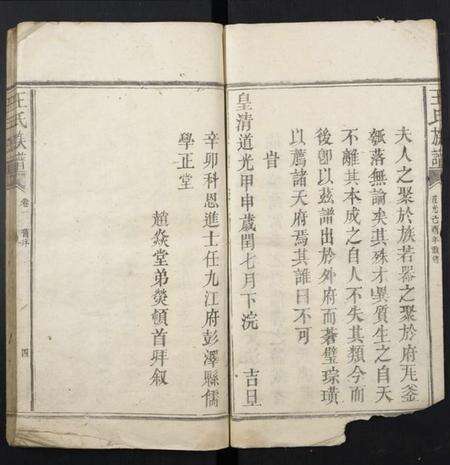 王氏族譜
夫人之聚於族若器之聚於府瓦釜
瓠落無論矣其殊才異質生之自天
不離其本成之自人不失其類今而
後卽以茲譜出於外府而蒼璧琮璜
以薦諸天府焉其誰曰不可
旹
皇清道光甲申歲閏七月下浣 吉旦
辛卯科恩進士任九江府彭澤縣儒
學正堂
趙焱堂弟燮頓首拜叙
王氏族譜
卷一 舊序
四